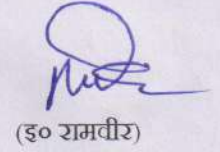 (इ० रामवीर)